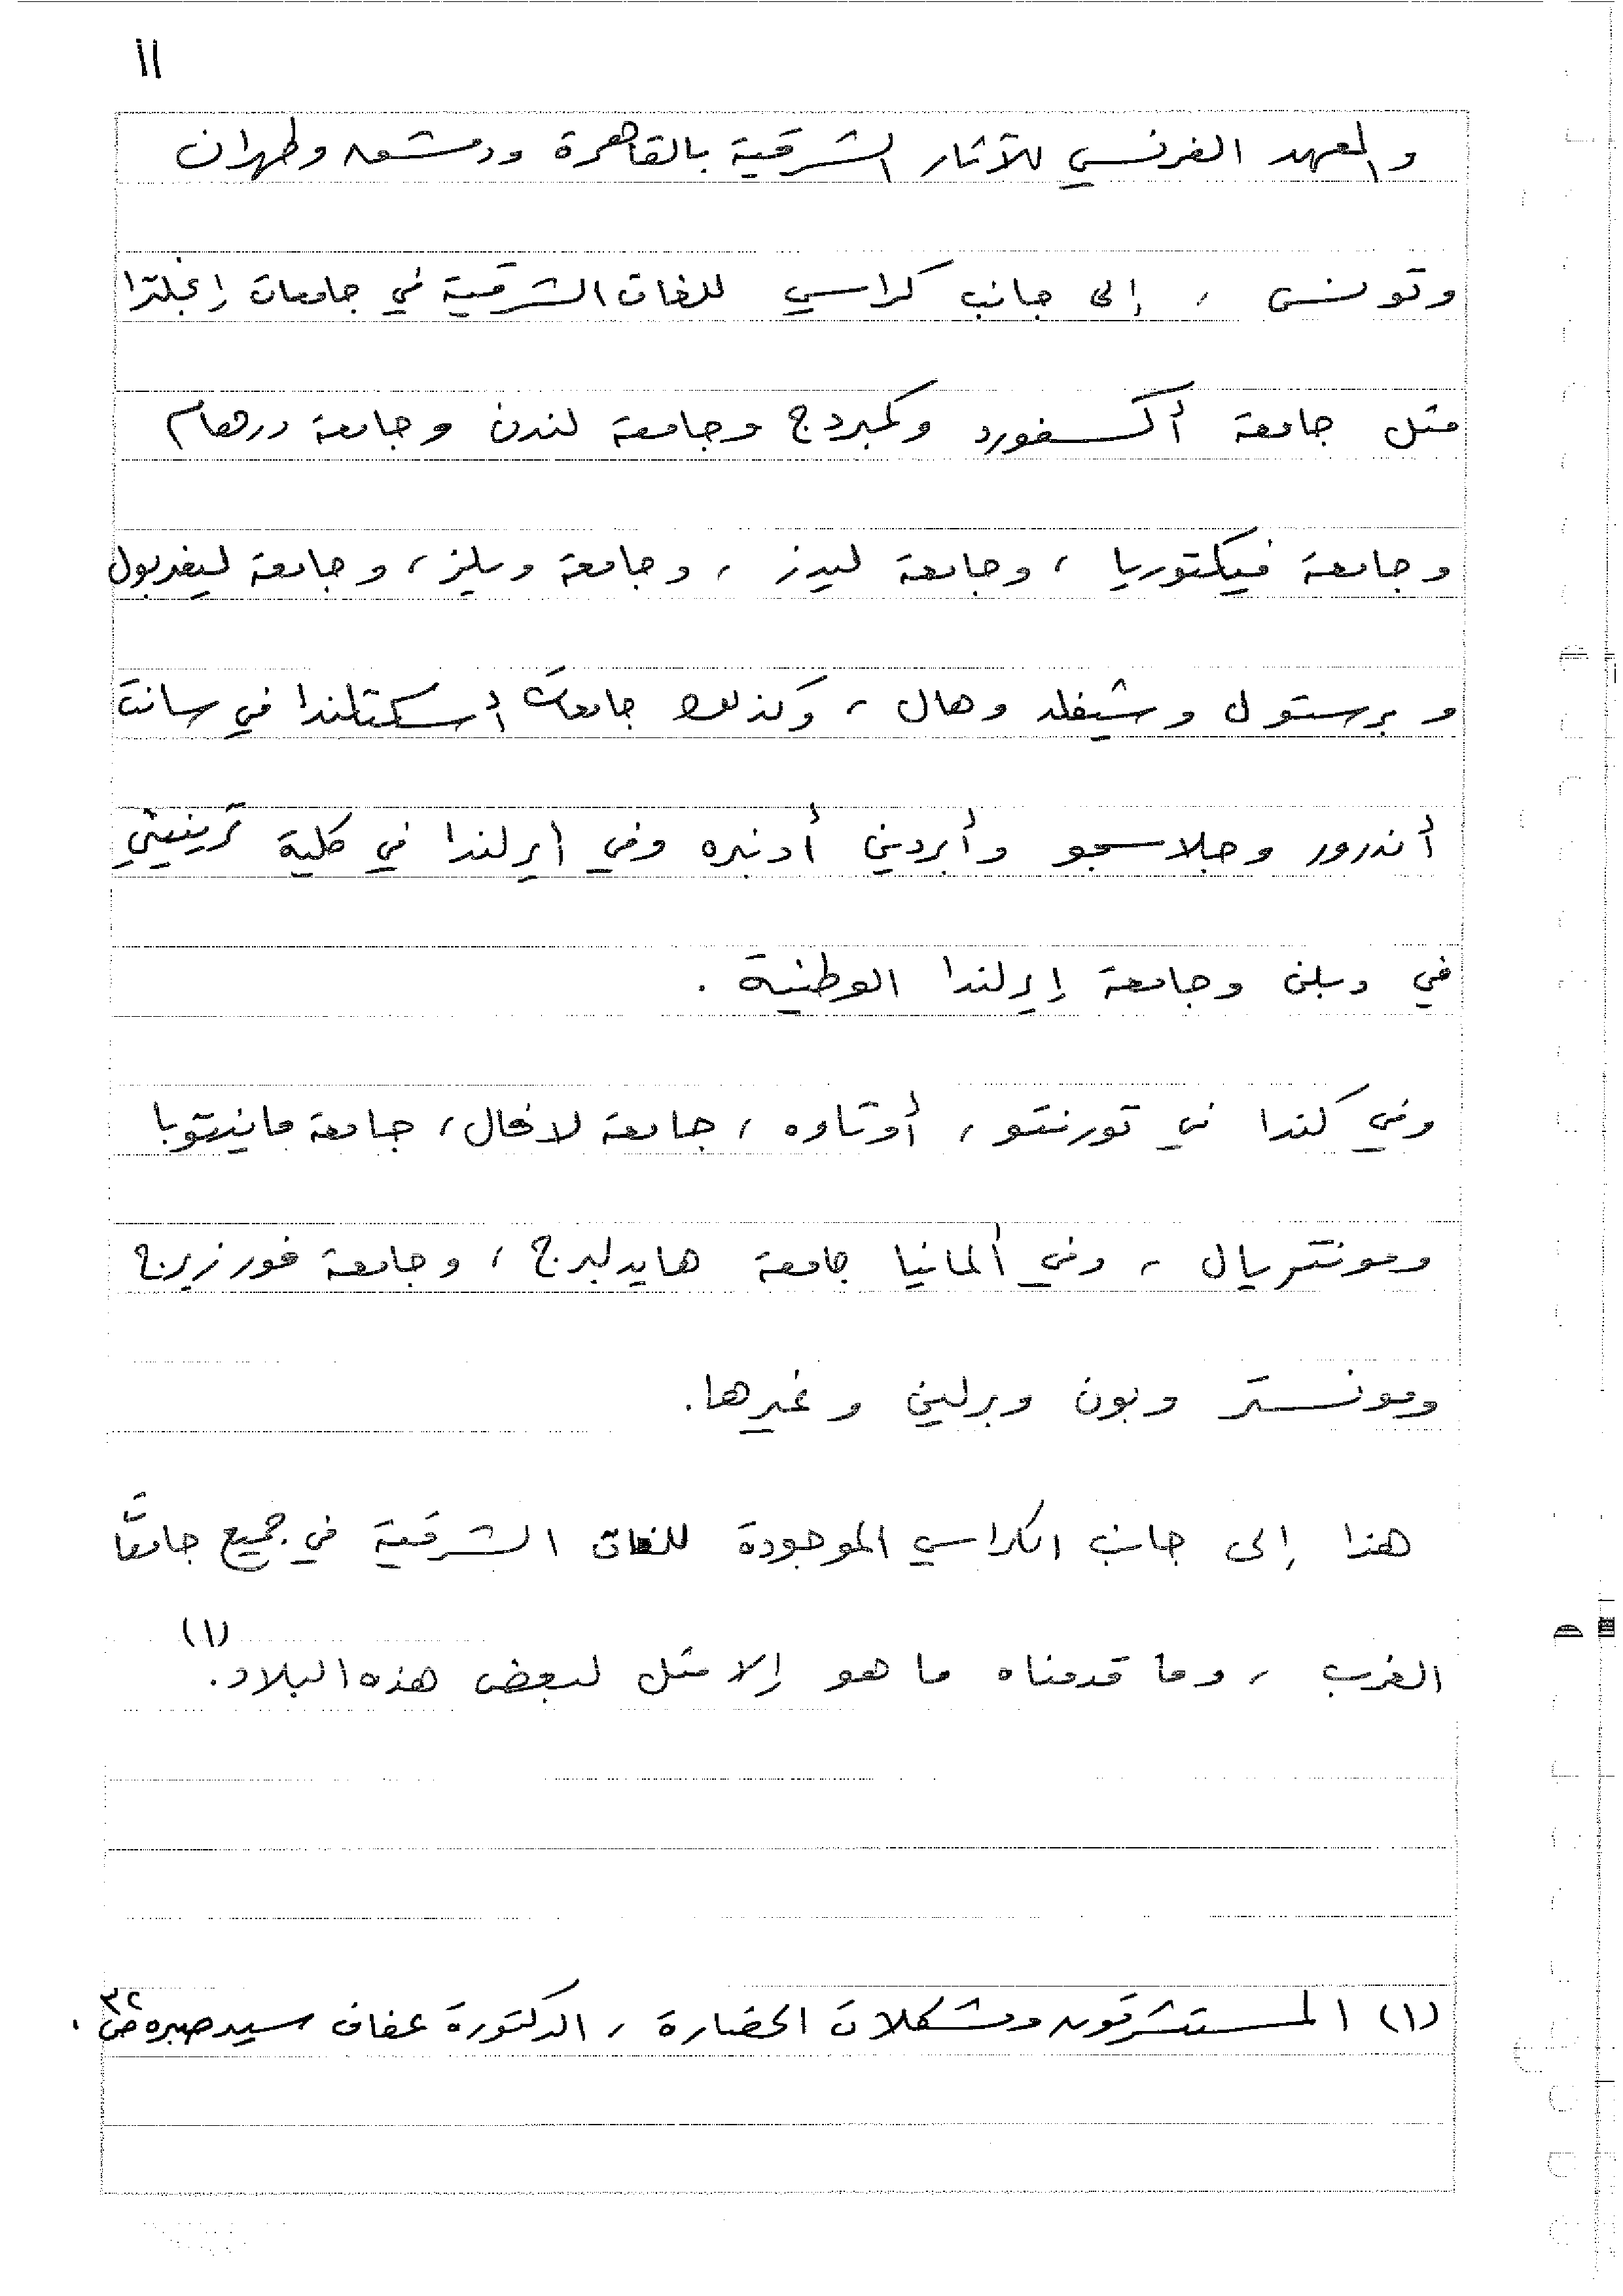 ١١
والمعهد الفرنسي للآثار الشرقية بالقاهرة ودمشق وطهران
وتونس ، إلى جانب كراسي للغات الشرقية في جامعات إنجلترا
مثل جامعة أكسفورد وكمبردج وجامعة لندن وجامعة درهام
وجامعة فيكتوريا ، وجامعة ليدز ، وجامعة ويلز ، وجامعة ليفربول
وبرستول وشيفلد وهال ، وكذلك جامعات أسكتلندا في سانت
أندرور وجلاسجو وأبردين أدنبره وفي إيرلندا في كلية ترينيتي
في دبلن وجامعة إيرلندا الوطنية .
وفي كندا في تورنتو ، أوتاوه ، جامعة لافال ، جامعة مانيتوبا
ومونتريال ، وفي ألمانيا جامعة هايدلبرج ، وجامعة فورزبرج
ومونستر وبون وبرلين وغيرها.
هذا إلى جانب الكراسي الموجودة للغات الشرقية في جميع جامعات
الغرب ، وما قدمناه ما هو إلا مثل لبعض هذه البلاد. (١)
(١) المستشرقون ومشكلات الحضارة ، الدكتورة عفاف سيد صبره ص ٣٢ .